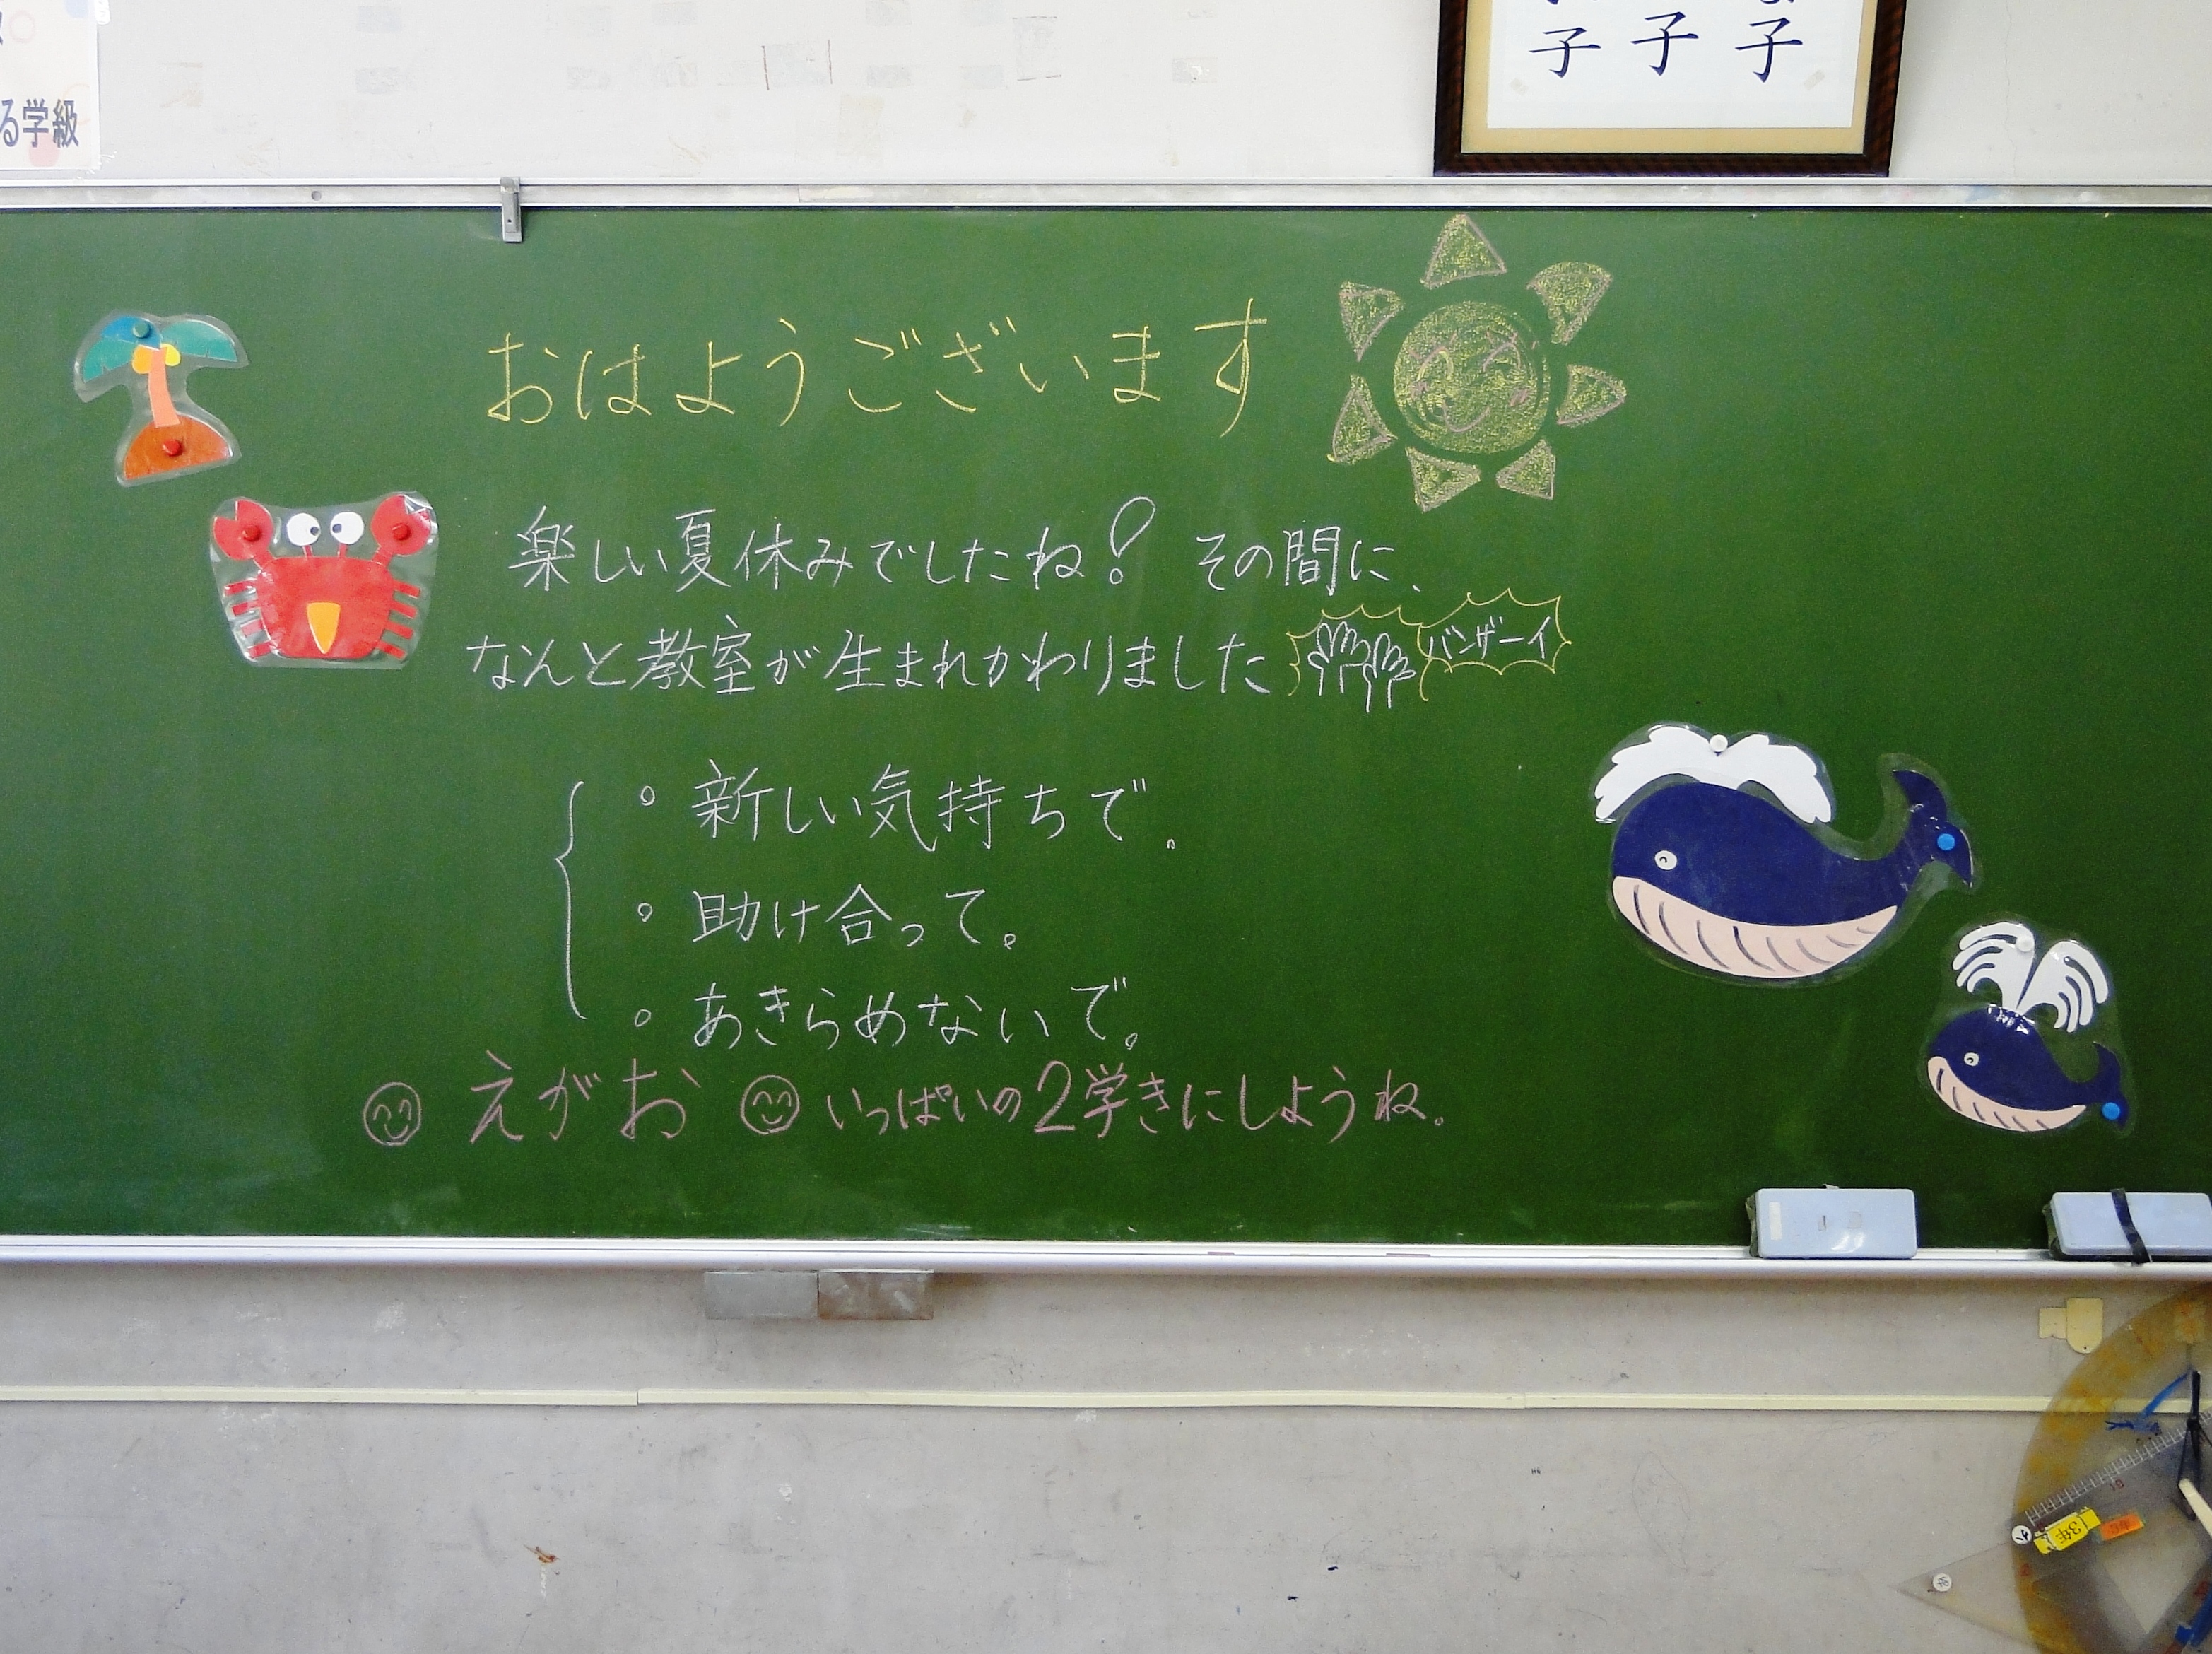 る学級
子 子 子
おはようございます
楽しい夏休みでしたね! その間に、
なんと教室が生まれかわりました バンザーイ
。新しい気持ちで。
。助け合って。
。あきらめないで。
えがお いっぱいの2学きにしようね。
3年